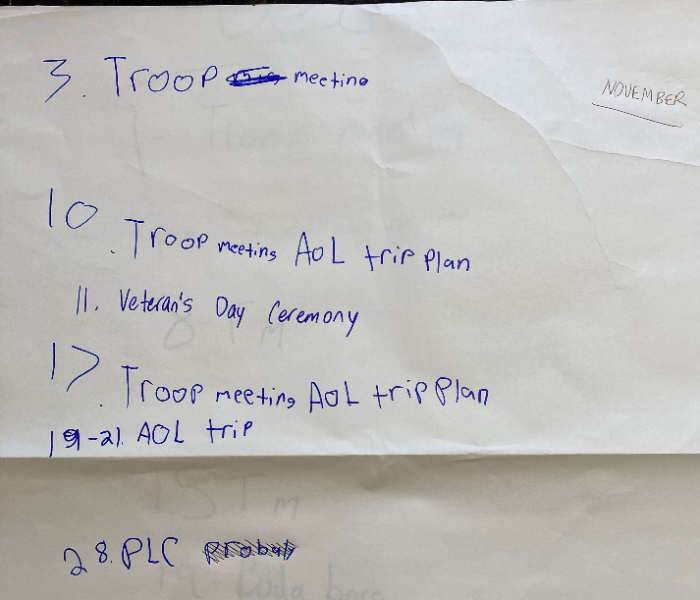 NOVEMBER
3. Troop meeting
10. Troop meeting AoL trip plan
11. Veteran's Day Ceremony
17. Troop meeting AoL trip Plan
19-21. AOL trip
28. PLC